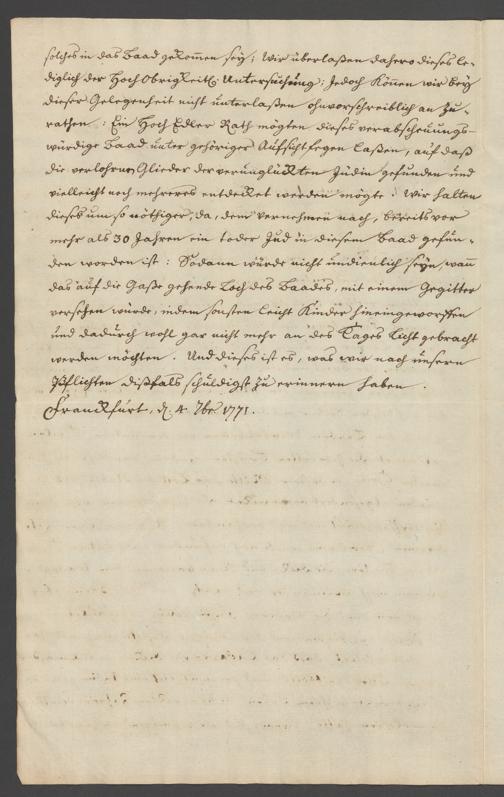 solches in das Baad gekom̅en sey; Wir überlaßen dahero dieses le-
diglich der Hoch Obrigkeitl: Untersuchung; Jedoch kön̅en wir bey
dieser Gelegenheit nicht unterlaßen ohnvorschreiblich an zu-
rathen: Ein Hoch Edler Rath mögten dieses verabscheuungs-
würdige Baad unter gehöriger Aufsicht fegen laßen, auf daß
die verlohrne Glieder der verunglückten Jüdin gefunden und
vielleicht noch mehreres entdecket werden mögte: Wir halten
dieses um so nöthiger, da, dem vernehmen nach, bereits vor
mehr als 30 Jahren ein todter Jud in diesem Baad gefun-
den worden ist: Sodann würde nicht undienlich seyn, wan̅
das auf die Gaße gehende Loch des Baades, mit einem Gegitter
versehen würde, indem sonsten leicht Kinder hineingeworffen
und dadurch wohl gar nicht mehr an des Tages Licht gebracht
werden möchten. Und dieses ist es, was wir nach unsern
Pflichten dißfals schuldigst zu erinnern haben.
Franckfurt, d. 4 7br 1771.